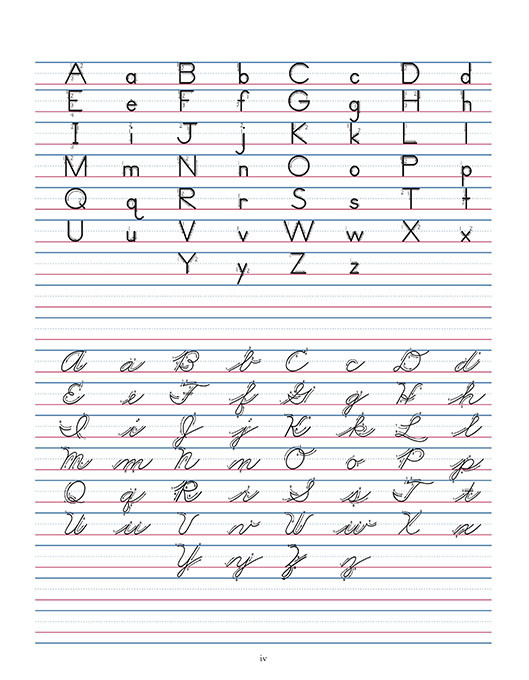 A a B b C c D d
E e F f G g H h
I i J j K k L l
M m N n O o P p
Q q R r S s T t
U u V v W w X x
Y y Z z
A a B b C c D d
E e F f G g H h
I i J j K k L l
M m N n O o P p
Q q R r S s T t
U u V v W w X x
Y y Z z
iv